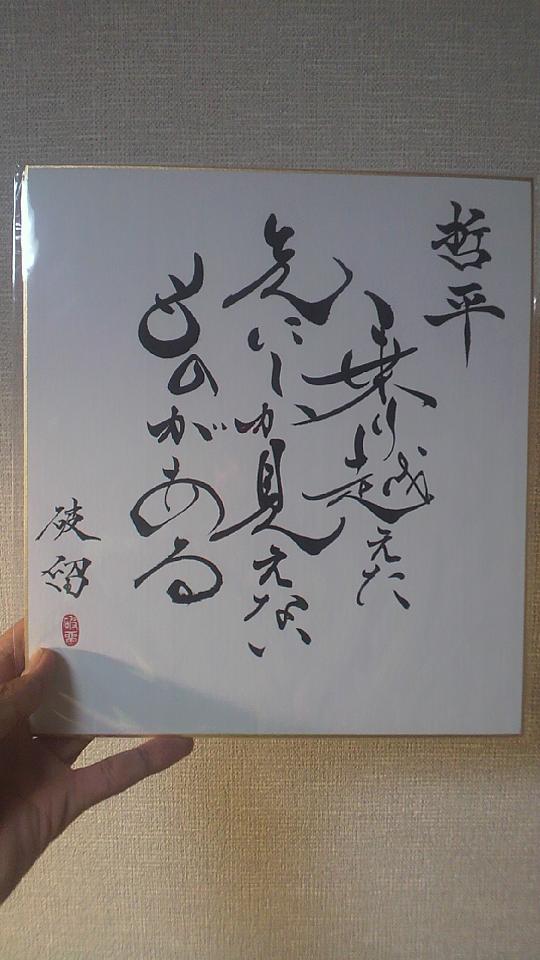 哲平
乗り越えた
先にしか見えない
ものがある